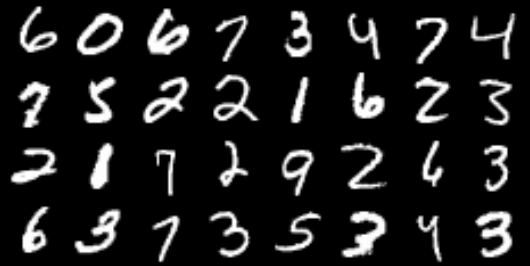 6 0 6 7 3 4 7 4
7 5 2 2 1 6 2 3
2 1 7 2 9 2 6 3
6 3 7 3 5 3 4 3